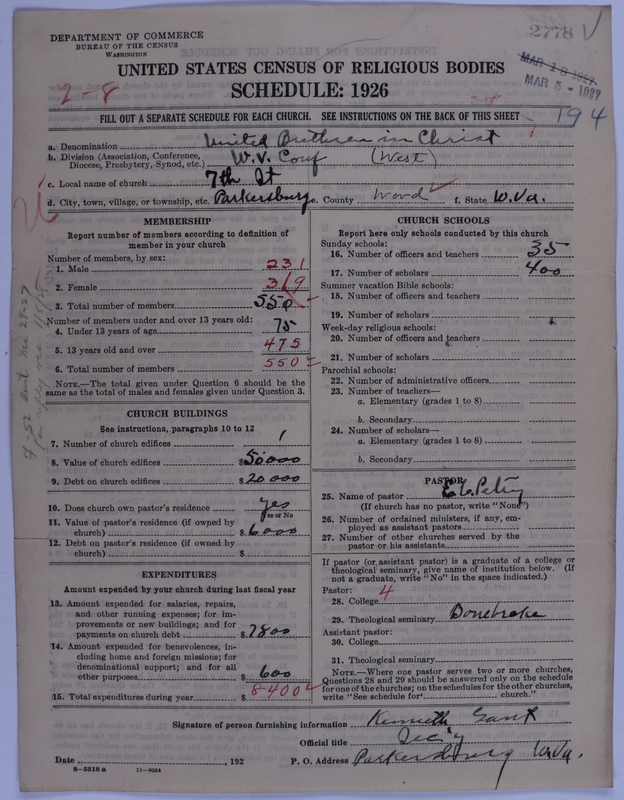 DEPARTMENT OF COMMERCE
BUREAU OF THE CENSUS
WASHINGTON
2778
MAR 5 - 1927
UNITED STATES CENSUS OF RELIGIOUS BODIES
SCHEDULE: 1926
2-8
FILL OUT A SEPARATE SCHEDULE FOR EACH CHURCH. SEE INSTRUCTIONS ON THE BACK OF THIS SHEET
194
a. Denomination United Brethren in Christ
b. Division (Association, Conference, Diocese, Presbytery, Synod, etc.) W.V. Conf (West)
c. Local name of church 7th St
d. City, town, village, or township, etc. Parkersburg e. County Wood f. State W.Va.
MEMBERSHIP
Report number of members according to definition of
member in your church
Number of members, by sex:
1. Male 231
2. Female 319
3. Total number of members 550
Number of members under and over 13 years old:
4. Under 13 years of age 75
5. 13 years old and over 475
6. Total number of members 550
NOTE.—The total given under Question 6 should be the
same as the total of males and females given under Question 3.
CHURCH BUILDINGS
See instructions, paragraphs 10 to 12
7. Number of church edifices 1
8. Value of church edifices $50000
9. Debt on church edifices $20000
10. Does church own pastor's residence yes
Yes or No
11. Value of pastor's residence (if owned by
church) $6000
12. Debt on pastor's residence (if owned by
church) $
EXPENDITURES
Amount expended by your church during last fiscal year
13. Amount expended for salaries, repairs,
and other running expenses; for im-
provements or new buildings; and for
payments on church debt $7800
14. Amount expended for benevolences, in-
cluding home and foreign missions; for
denominational support; and for all
other purposes $600
15. Total expenditures during year $8400
CHURCH SCHOOLS
Report here only schools conducted by this church
Sunday schools:
16. Number of officers and teachers 35
17. Number of scholars 400
Summer vacation Bible schools:
18. Number of officers and teachers
19. Number of scholars
Week-day religious schools:
20. Number of officers and teachers
21. Number of scholars
Parochial schools:
22. Number of administrative officers
23. Number of teachers—
a. Elementary (grades 1 to 8)
b. Secondary
24. Number of scholars—
a. Elementary (grades 1 to 8)
b. Secondary
PASTOR
25. Name of pastor
(If church has no pastor, write "None")
26. Number of ordained ministers, if any, em-
ployed as assistant pastors
27. Number of other churches served by the
pastor or his assistants
If pastor (or assistant pastor) is a graduate of a college or
theological seminary, give name of institution below. (If
not a graduate, write "No" in the space indicated.)
Pastor: 4
28. College
29. Theological seminary Bonebrake
Assistant pastor:
30. College
31. Theological seminary
NOTE.—Where one pastor serves two or more churches,
Questions 28 and 29 should be answered only on the schedule
for one of the churches; on the schedules for the other churches,
write "See schedule for church."
Signature of person furnishing information Kenneth Gant
Official title Sec'y
Date , 192 P. O. Address Parkersburg W.Va.
8-5518 a 11-9054